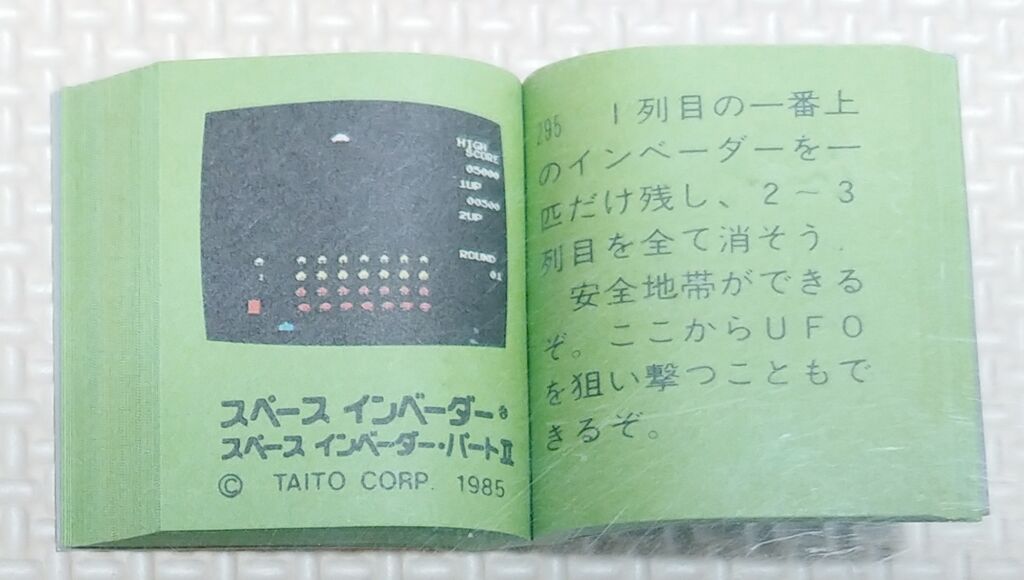 HIGH
SCORE
05000
1UP
00500
2UP
ROUND
01
スペース インベーダー®
スペース インベーダー・パートII
© TAITO CORP. 1985
295 1列目の一番上
のインベーダーを一
匹だけ残し、2～3
列目を全て消そう.
安全地帯ができる
ぞ。ここからUFO
を狙い撃つこともで
きるぞ。